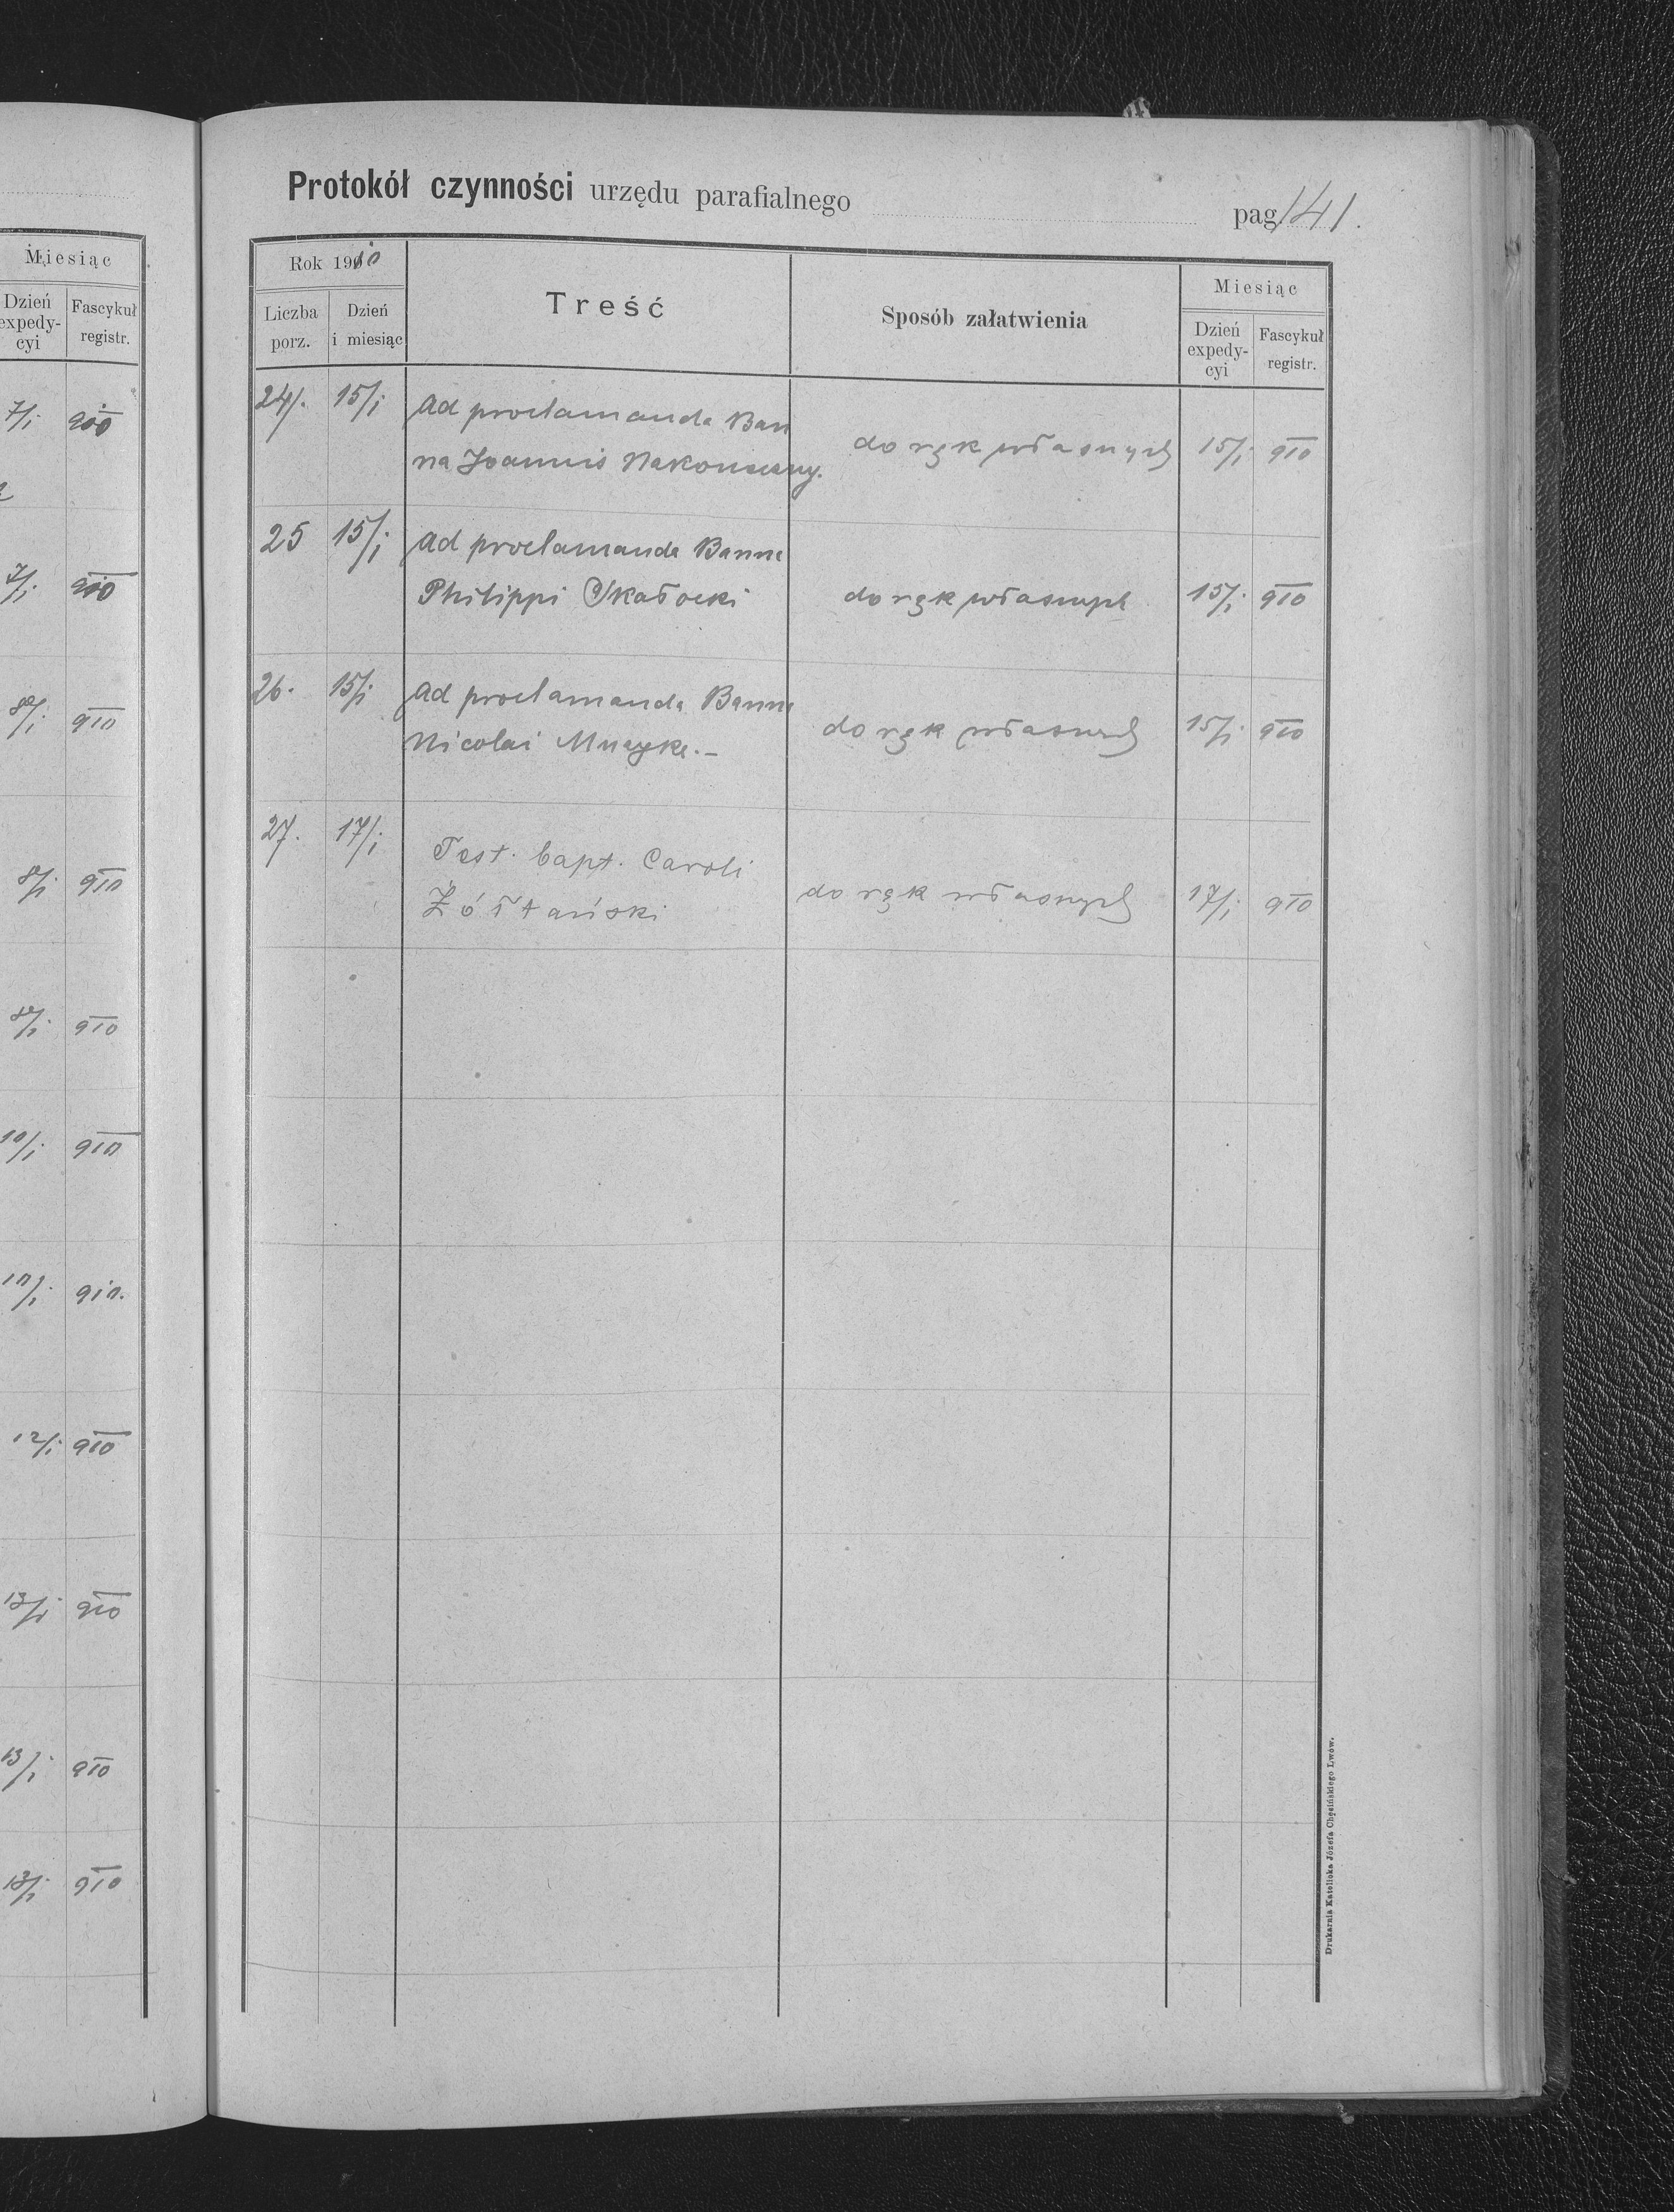 Miesiąc
Dzień expedy- cyi
Fascykuł registr.
7/I 910
7/I 910
8/I 910
8/I 910
8/I 910
10/I 910
10/I 910.
12/I 910
13/I 910
13/I 910
13/I 910
Protokół czynności urzędu parafialnego pag. 141.
Rok 1910
Liczba porz.
Dzień i miesiąc
Treść
Sposób załatwienia
Miesiąc
Dzień expedy- cyi
Fascykuł registr.
24. 15/I Ad proclamanda Ban
na Joannis Nakoneczny. do rąk własnych 15/I 910
25 15/I Ad proclamanda Banna
Philippi Skałocki do rąk własnych 15/I 910
26. 15/I Ad proclamanda Banna
Nicolai Muzyka.- do rąk własnych 15/I 910
27. 17/I Test. bapt. Caroli
Żółtański do rąk własnych 17/I 910
Drukarnia Katolicka Józefa Chęcińskiego Lwów.